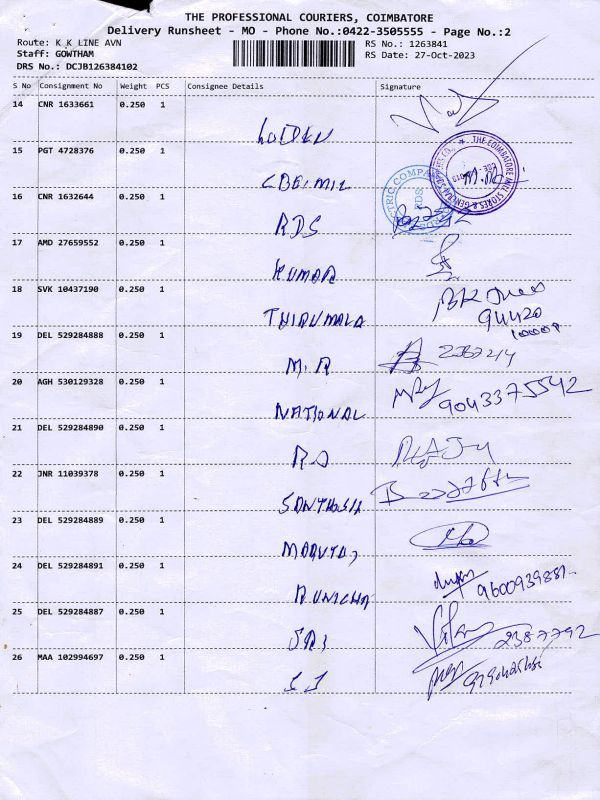 THE PROFESSIONAL COURIERS, COIMBATORE
Delivery Runsheet - MO - Phone No.:0422-3505555 - Page No.:2
Route: K K LINE AVN RS No.: 1263841
Staff: GOWTHAM RS Date: 27-Oct-2023
DRS No.: DCJB126384102
S No Consignment No Weight PCS Consignee Details Signature
14 CNR 1633661 0.250 1
GOLDEN
15 PGT 4728376 0.250 1
CBE, MIL
16 CNR 1632644 0.250 1
RDS
17 AMD 27659552 0.250 1
KUMAR
18 SVK 10437190 0.250 1
THIRUMALA 94420
19 DEL 529284888 0.250 1
M.R 2387214
20 AGH 530129328 0.250 1
NATIONAL 9043375542
21 DEL 529284890 0.250 1
22 JNR 11039378 0.250 1
SANTHOSH
23 DEL 529284889 0.250 1
MARUTI
24 DEL 529284891 0.250 1
9600939881
25 DEL 529284887 0.250 1
SRI 2387792
26 MAA 102994697 0.250 1